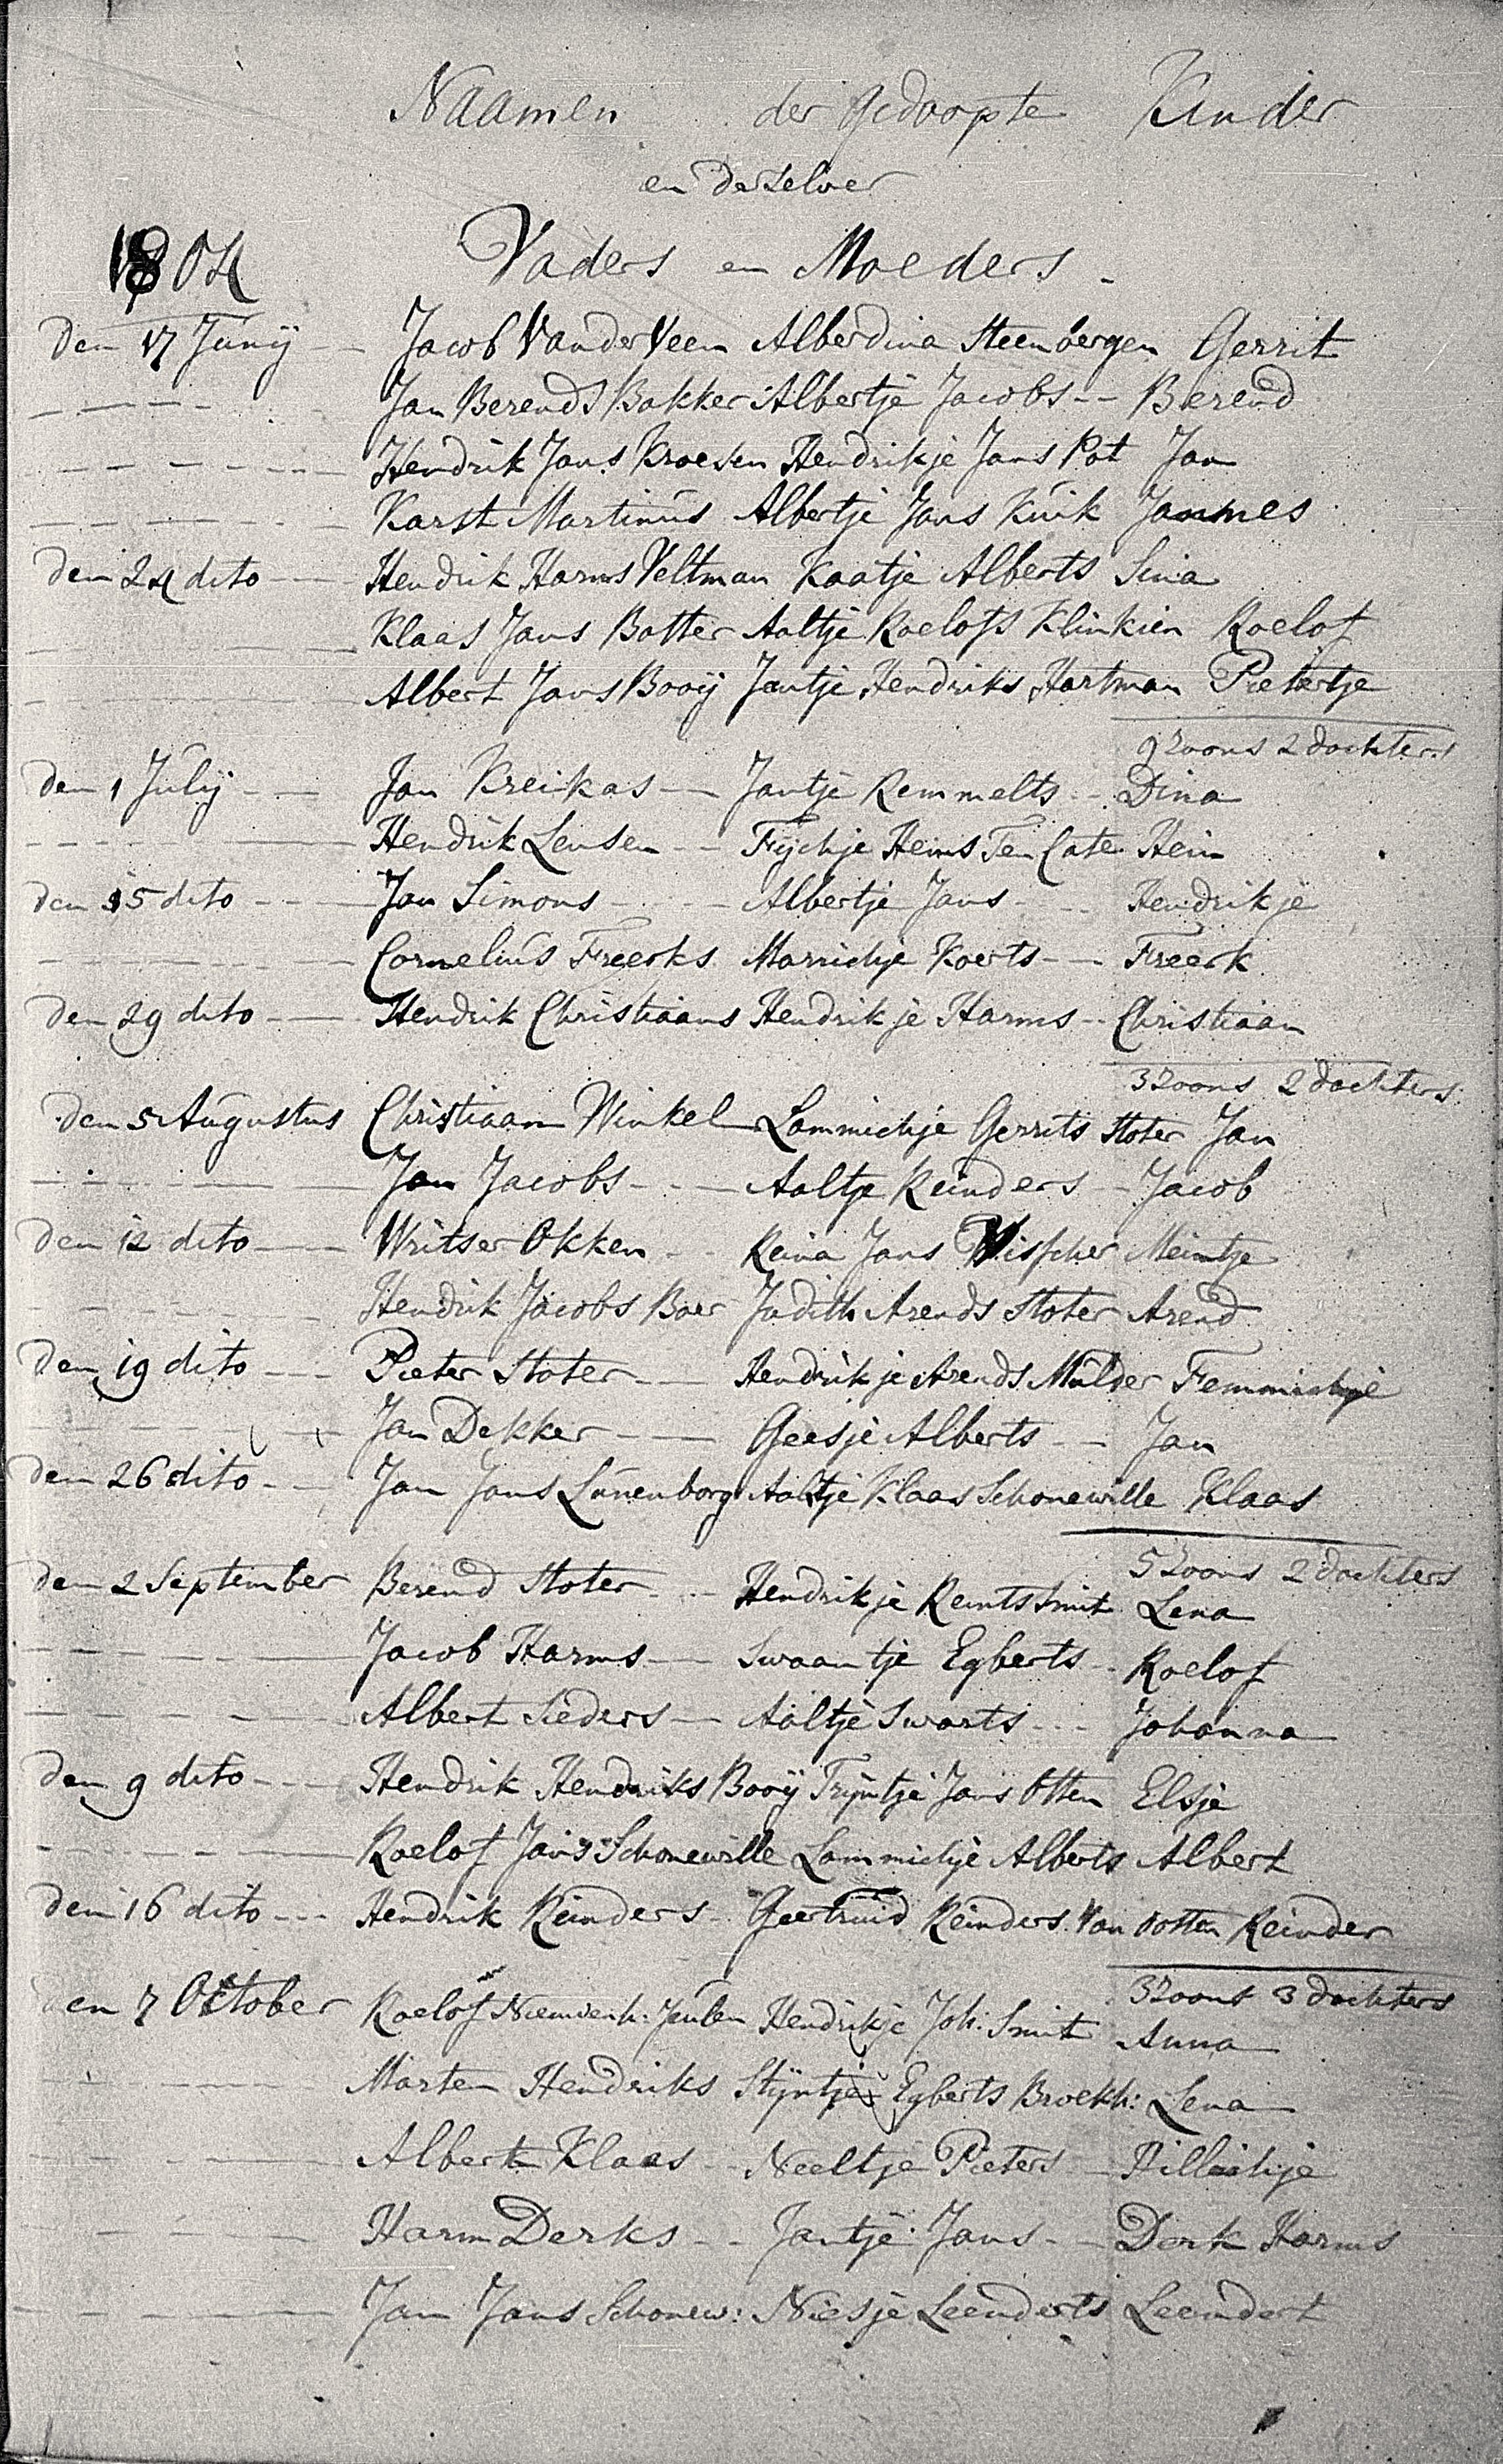 Naamen der gedoopte Kinder
en derzelver
1804 Vaders en Moeders
Den 17 Junij Jacob Van der Veen Alberdina Steenbergen Gerrit
Jan Berends Bakker Albertje Jacobs Berend
Hendrik Jans Kroesen Hendrikje Jans Pot Jan
Karst Martinus Albertje Jans Kuik Jannes
Den 24 dito Hendrik Harms Veltman Kaatje Alberts Sina
Klaas Jans Botter Aaltje Roelofs Klinkien Roelof
Albert Jans Booij Jantje Hendriks Hartman Pietertje
9 Zoons 2 dochters
Den 1 Julij Jan Kreikas Jantje Remmelts Dina
Hendrik Lensen Fijchje Heins Ten Cate Hein
Den 15 dito Jan Simons Albertje Jans Hendrikje
Cornelius Freerks Marrichje Koerts Freerk
Den 29 dito Hendrik Christiaans Hendrikje Harms Christiaan
3 Zoons 2 dochters
Den 5 Augustus Christiaan Winkel Lammichje Gerrits Stoter Jan
Jan Jacobs Aaltje Reinders Jacob
Den 12 dito Writser Okken Reina Jans Visscher Meintje
Hendrik Jacobs Boer Judith Arends Stoter Arend
Den 19 dito Pieter Stoter Hendrikje Arends Mulder Femmichje
Jan Dekker Geesje Alberts Jan
Den 26 dito Jan Jans Lunenborg Aaltje Klaas Schonewille Klaas
5 Zoons 2 dochters
Den 2 September Berend Stoter Hendrikje Reints Smit Lena
Jacob Harms Swaantje Egberts Roelof
Albert Sieders Aaltje Swarts Johanna
Den 9 dito Hendrik Hendriks Booij Trijntje Jans Otten Elsje
Roelof Jans Schonewille Lammichje Alberts Albert
Den 16 dito Hendrik Reinders Geertruid Reinders Van Rotten Reinder
3 Zoons 3 dochters
Den 7 October Roelof Nieuwenh: Jeulen Hendrikje Joh: Smit Anna
Marten Hendriks Stijntje Egberts Broekh: Lena
Albert Klaas Neeltje Pieters Hillichje
Harm Derks Jantje Jans Derk Harms
Jan Jans Schonew: Niesje Leenderts Leendert